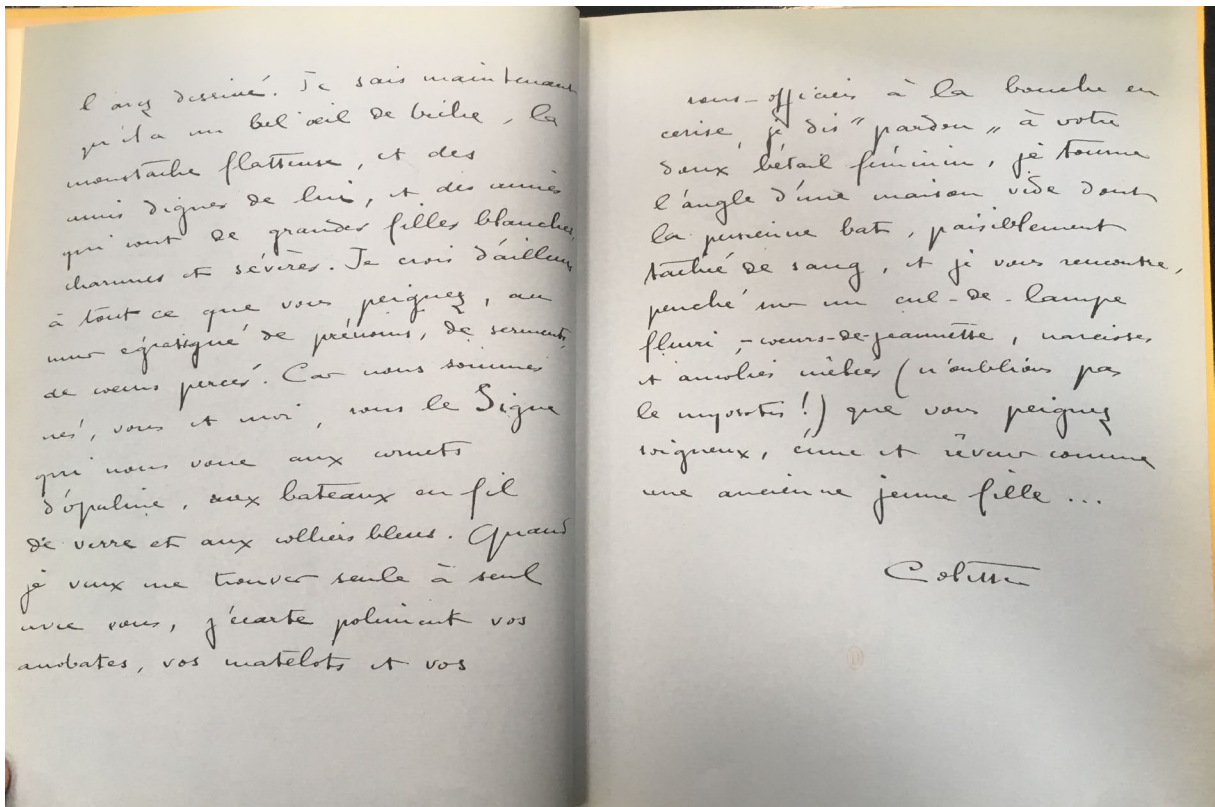 l'avez dessiné. Je sais maintenant
qu'il a un bel œil de biche, la
moustache flatteuse, et des
amis dignes de lui, et des amies
qui sont de grandes filles blanches,
charnues et sévères. Je crois d'ailleurs
à tout ce que vous peignez, au
mur égratigné de prénoms, de serments,
de cœurs percés. Car nous sommes
nés, vous et moi, sous le Signe
qui nous voue aux cornets
d'opaline, aux bateaux en fil
de verre et aux colliers bleus. Quand
je veux me trouver seule à seul
avec vous, j'écarte poliment vos
acrobates, vos matelots et vos
sous-officiers à la bouche en
cerise, je dis "pardon" à votre
doux bétail féminin, je tourne
l'angle d'une maison vide dont
la persienne bat, paisiblement
taché de sang, et je vous rencontre,
penché sur un cul-de-lampe
fleuri, - cœurs-de-jeannette, narcisses
et ancolies mêlés (n'oublions pas
le myosotis!) que vous peignez
soigneux, ému et rêveur comme
une ancienne jeune fille...
Colette